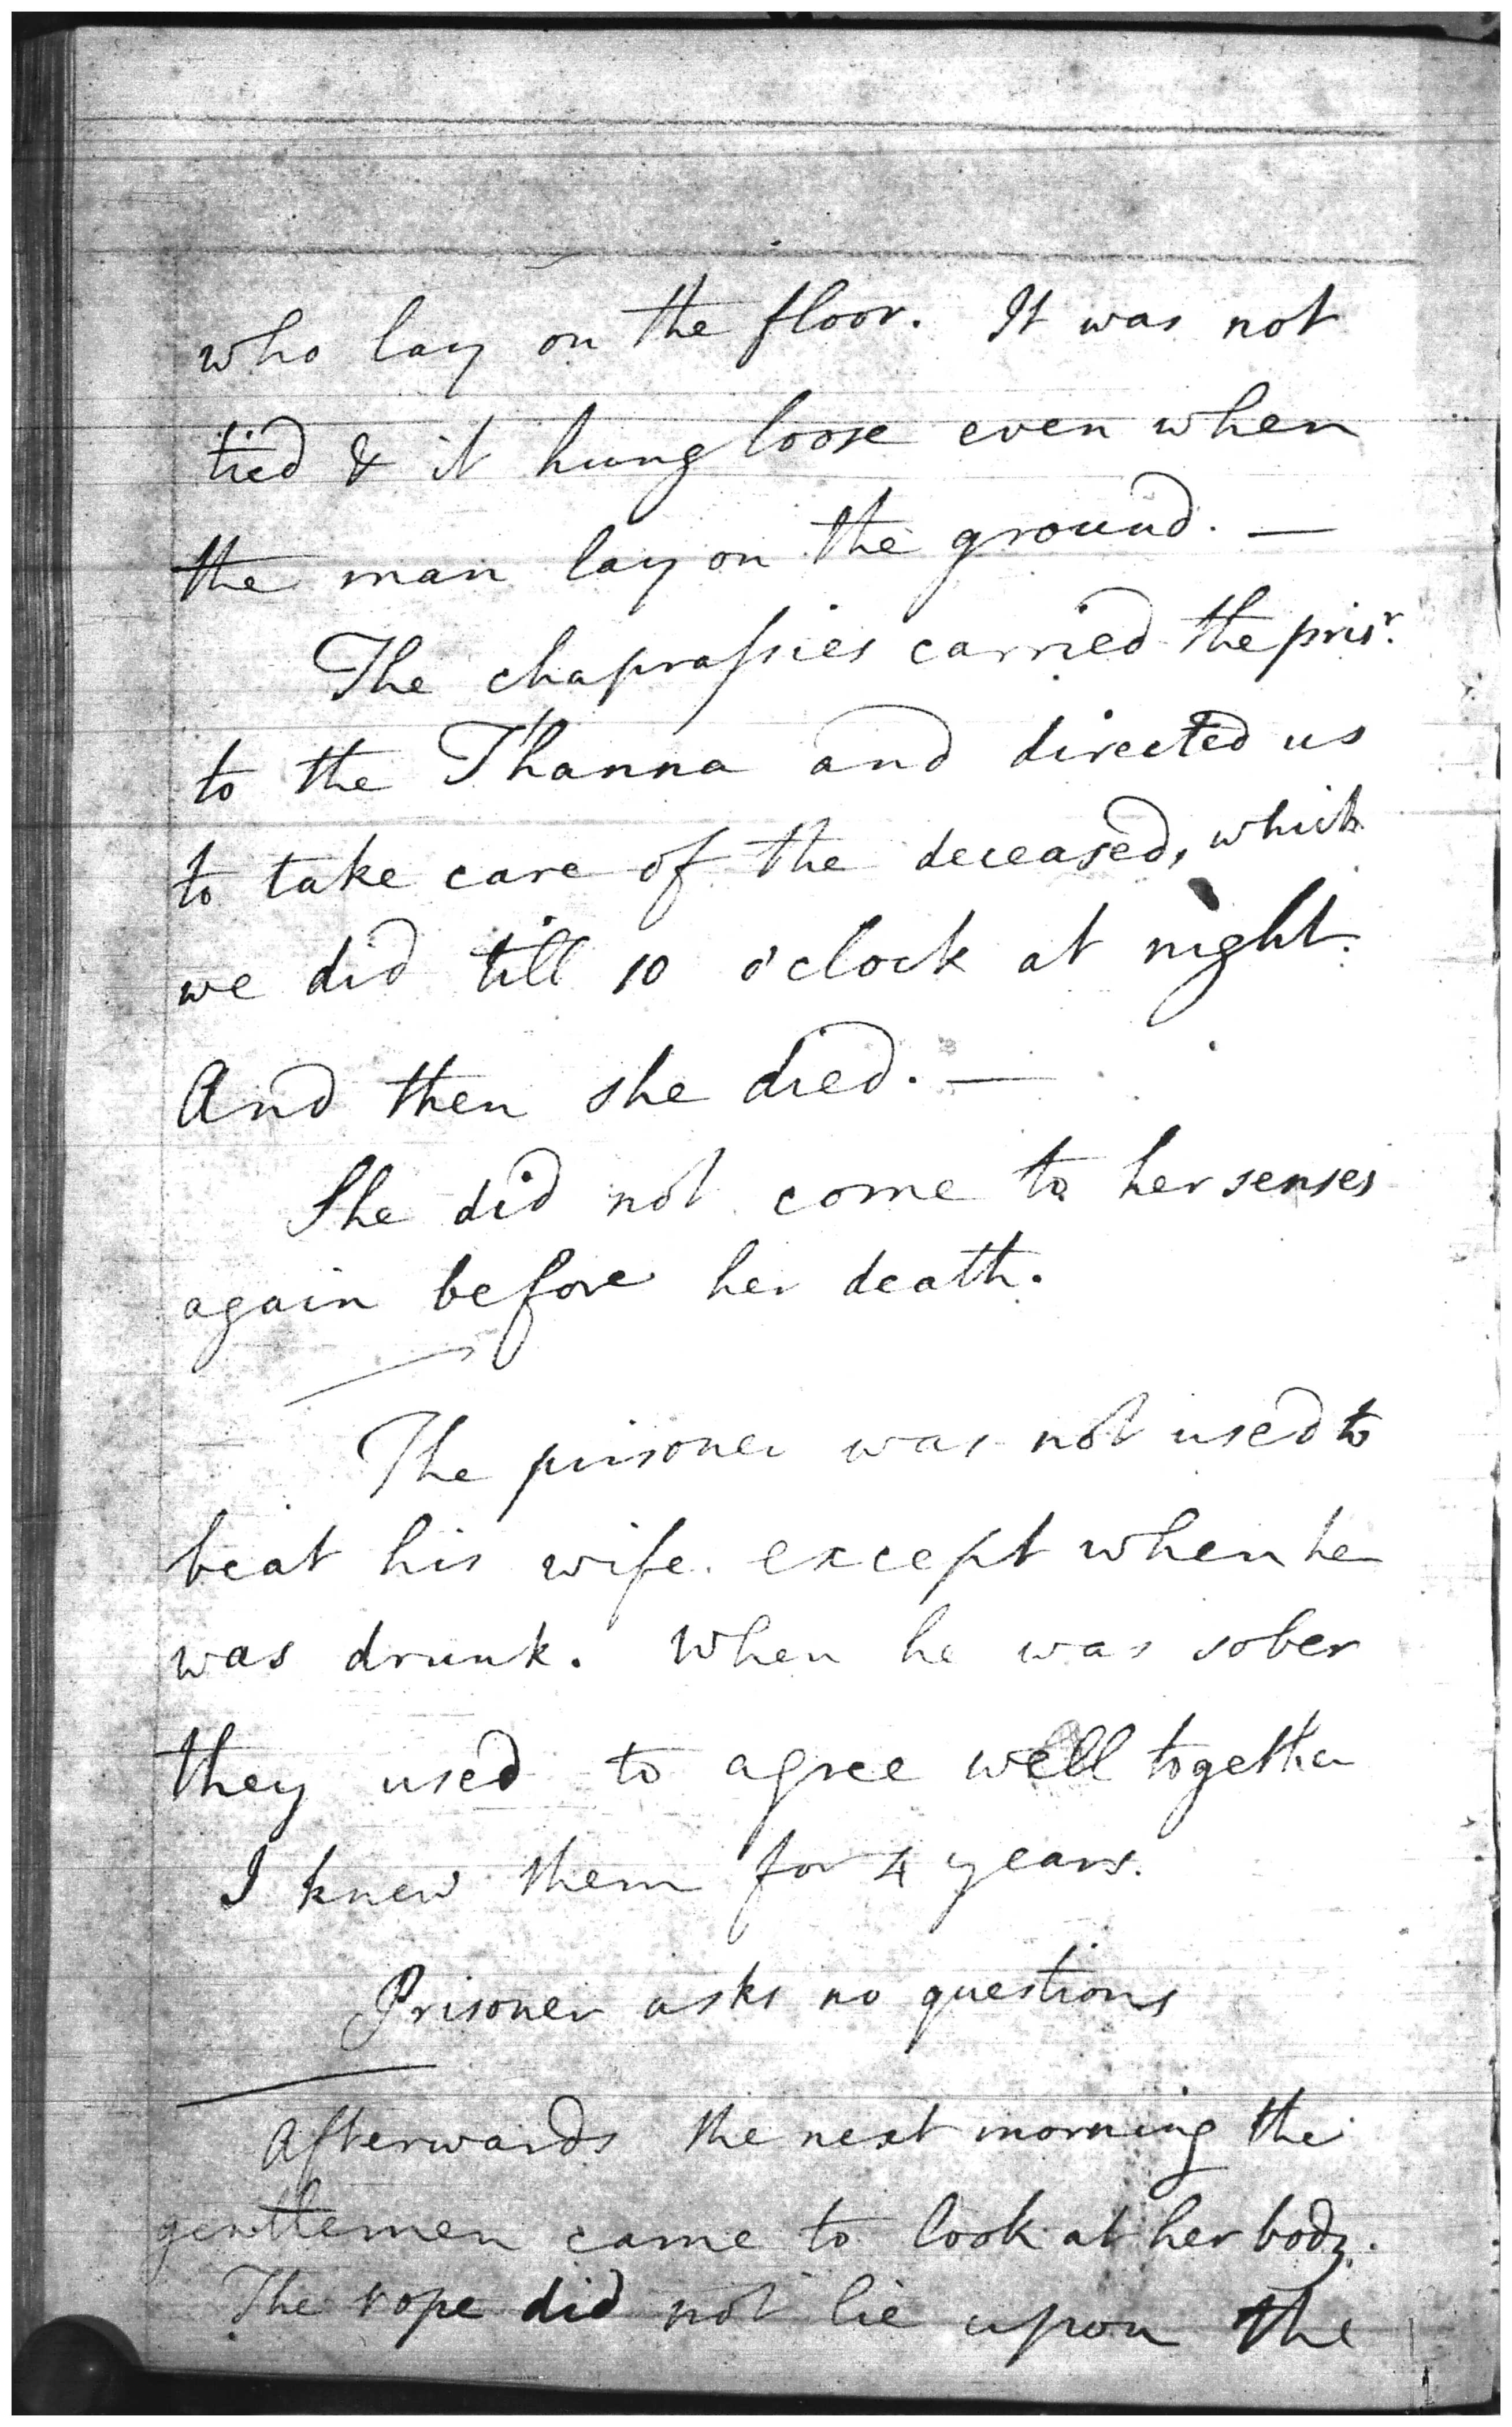 who lay on the floor. It was not
tied & it hung loose even when
the man lay on the ground. —
The chaprassies carried the prisr.
to the Thanna and directed us
to take care of the deceased, which
we did till 10 o'clock at night.
And then she died. —
She did not come to her senses
again before her death.
The prisoner was not used to
beat his wife except when he
was drunk. When he was sober
they used to agree well together
I knew them for 4 years.
Prisoner asks no questions
Afterwards the next morning the
gentlemen came to look at her body.
The rope did not lie upon the